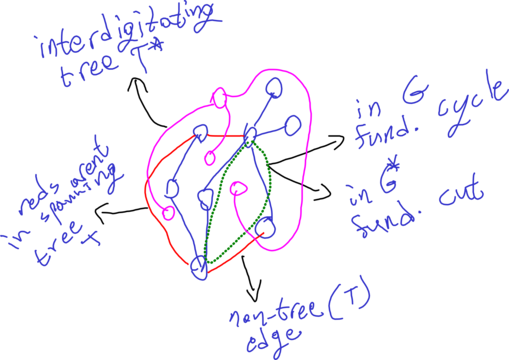 interdigitating
tree T*
in G
fund. cycle
in G*
fund. cut
reds arent
in spanning
tree
T
non-tree (T)
edge